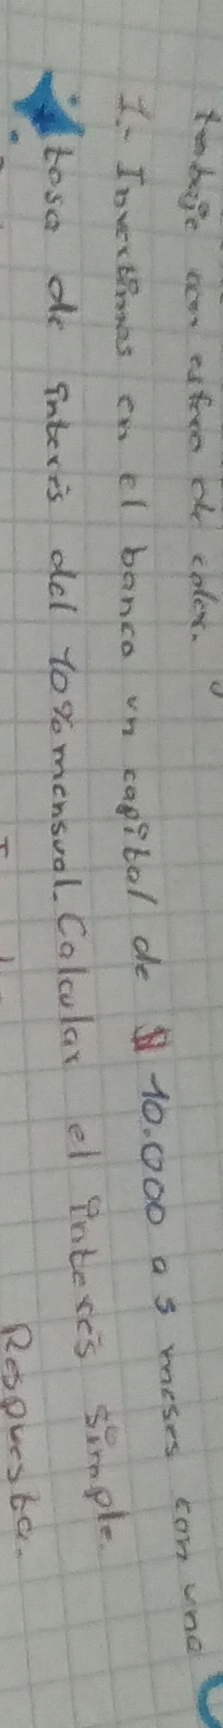 trabaje con esfero de color.
1.- Invertimos en el banco un capital de $ 10.000 a 3 meses con una
tasa de interés del 10% mensual. Calcular el interés simple.
Respuesta.